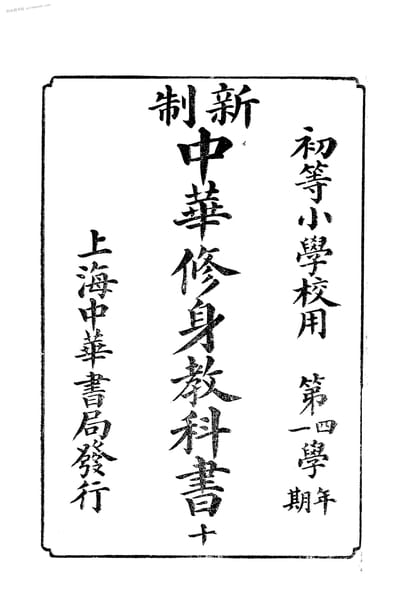 初等小學校用 第四學年第一學期
新制
中華修身教科書 十
上海中華書局發行